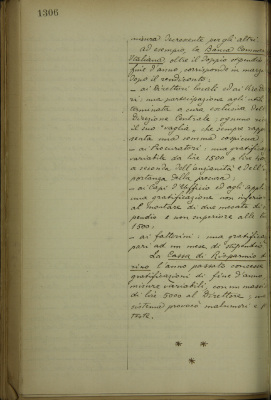 1306
misura decrescente per gli altri.
Ad esempio, la Banca Commerciale
Italiana, oltre il doppio stipendio
fine d'anno, corrisponde in marzo
dopo il rendiconto:
– ai Direttori locali ed ai
ri: una partecipazione agli utili
terminata a cura esclusiva della
Direzione Centrale; ognuno
il suo "vaglia", che sempre
senta una somma cospicua;
– ai Procuratori: una gratifica
variabile da lire 1500 a lire
a seconda dell'anzianità e dell'im
portanza della procura;
– ai Capi d'Ufficio ed agli
una gratificazione non inferiore
al montare di due mesate di sti
pendio e non superiore alle lire
1500.
– ai fattorini: una gratificazione
pari ad un mese di stipendio.
La Cassa di Risparmio di To
rino l'anno passato concesse
gratificazioni di fine d'anno
misure variabili, con un massimo
di lire 5000 al Direttore;
sistema provocò malumori e
teste.
* * *